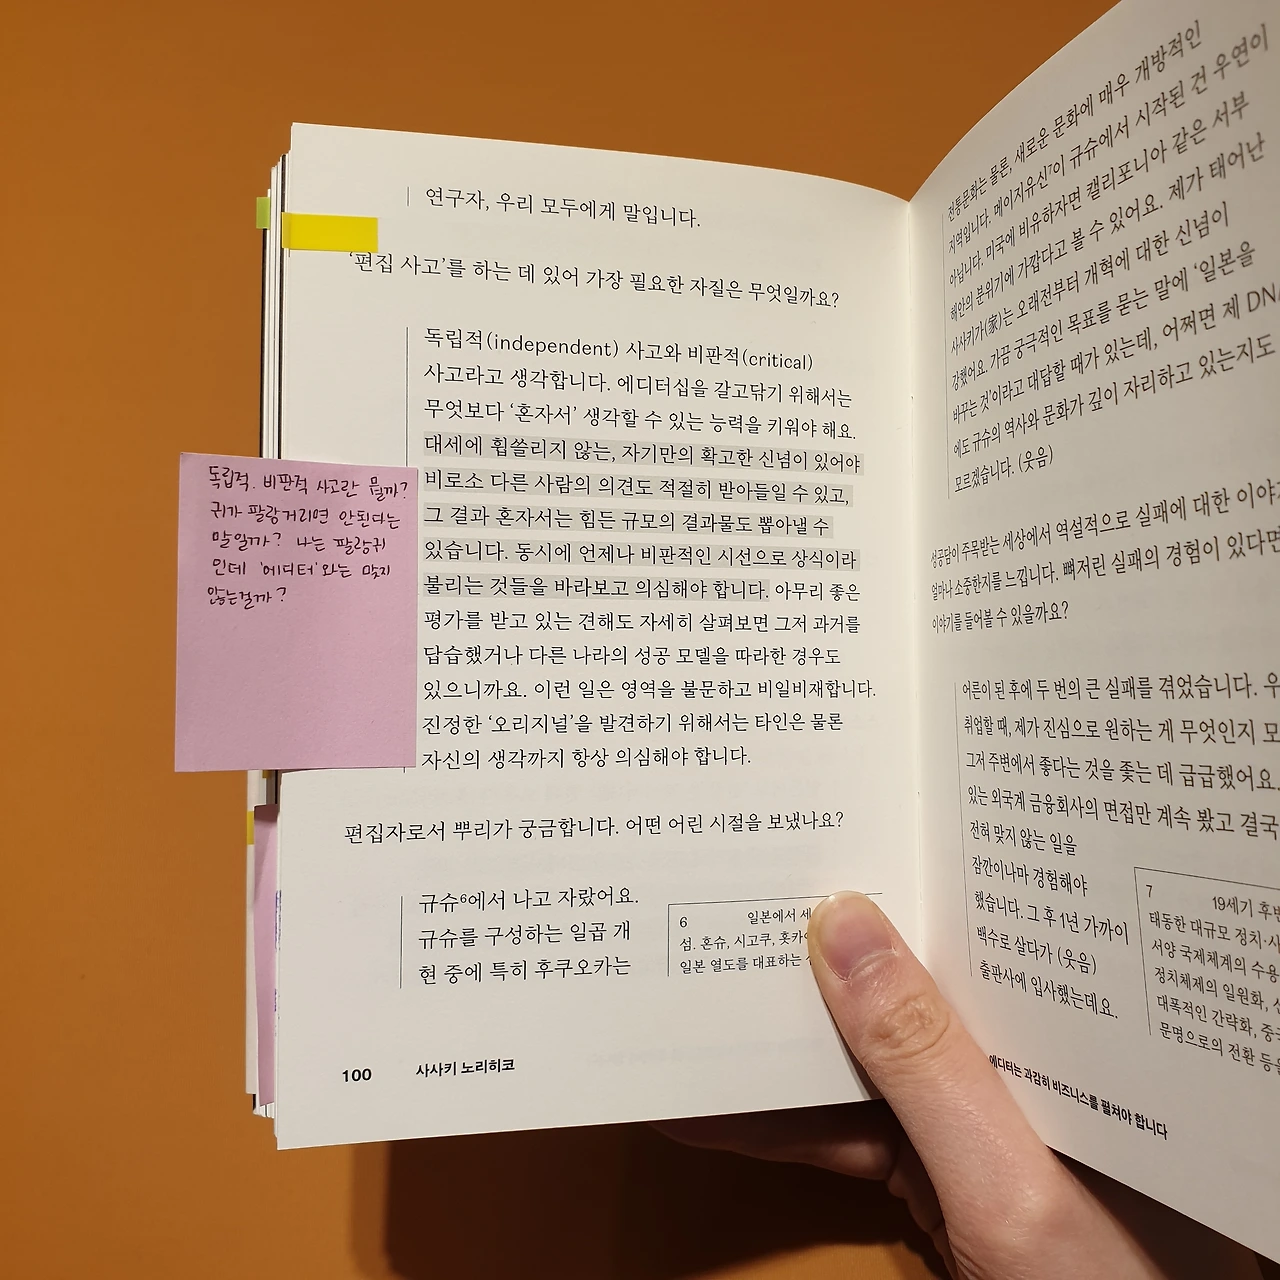 연구자, 우리 모두에게 말입니다.
'편집 사고'를 하는 데 있어 가장 필요한 자질은 무엇일까요?
독립적(independent) 사고와 비판적(critical)
사고라고 생각합니다. 에디터십을 갈고닦기 위해서는
무엇보다 '혼자서' 생각할 수 있는 능력을 키워야 해요.
대세에 휩쓸리지 않는, 자기만의 확고한 신념이 있어야
비로소 다른 사람의 의견도 적절히 받아들일 수 있고,
그 결과 혼자서는 힘든 규모의 결과물도 뽑아낼 수
있습니다. 동시에 언제나 비판적인 시선으로 상식이라
불리는 것들을 바라보고 의심해야 합니다. 아무리 좋은
평가를 받고 있는 견해도 자세히 살펴보면 그저 과거를
답습했거나 다른 나라의 성공 모델을 따라한 경우도
있으니까요. 이런 일은 영역을 불문하고 비일비재합니다.
진정한 '오리지널'을 발견하기 위해서는 타인은 물론
자신의 생각까지 항상 의심해야 합니다.
독립적. 비판적 사고란 뭘까?
귀가 팔랑거리면 안된다는
말일까? 나는 팔랑귀
인데 '에디터'와는 맞지
않는걸까?
편집자로서 뿌리가 궁금합니다. 어떤 어린 시절을 보냈나요?
규슈6에서 나고 자랐어요.
규슈를 구성하는 일곱 개
현 중에 특히 후쿠오카는
6
일본에서 세
섬. 혼슈, 시고쿠, 홋카
일본 열도를 대표하는
100 사사키 노리히코
전통문화는 물론, 새로운 문화에 매우 개방적인
지역입니다. 메이지유신7이 규슈에서 시작된 건 우연이
아닙니다. 미국에 비유하자면 캘리포니아 같은 서부
해안의 분위기에 가깝다고 볼 수 있어요. 제가 태어난
사사키가(家)는 오래전부터 개혁에 대한 신념이
강했어요. 가끔 궁극적인 목표를 묻는 말에 '일본을
바꾸는 것'이라고 대답할 때가 있는데, 어쩌면 제 DNA
에도 규슈의 역사와 문화가 깊이 자리하고 있는지도
모르겠습니다. (웃음)
성공담이 주목받는 세상에서 역설적으로 실패에 대한 이야
얼마나 소중한지를 느낍니다. 뼈저린 실패의 경험이 있다면
이야기를 들어볼 수 있을까요?
어른이 된 후에 두 번의 큰 실패를 겪었습니다. 우
취업할 때, 제가 진심으로 원하는 게 무엇인지 모
그저 주변에서 좋다는 것을 좇는 데 급급했어요.
있는 외국계 금융회사의 면접만 계속 봤고 결국
전혀 맞지 않는 일을
잠깐이나마 경험해야
했습니다. 그 후 1년 가까이
백수로 살다가 (웃음)
출판사에 입사했는데요.
7
19세기 후반
태동한 대규모 정치·사
서양 국제체계의 수용
정치체제의 일원화, 신
대폭적인 간략화, 중국
문명으로의 전환 등을
에디터는 과감히 비즈니스를 펼쳐야 합니다